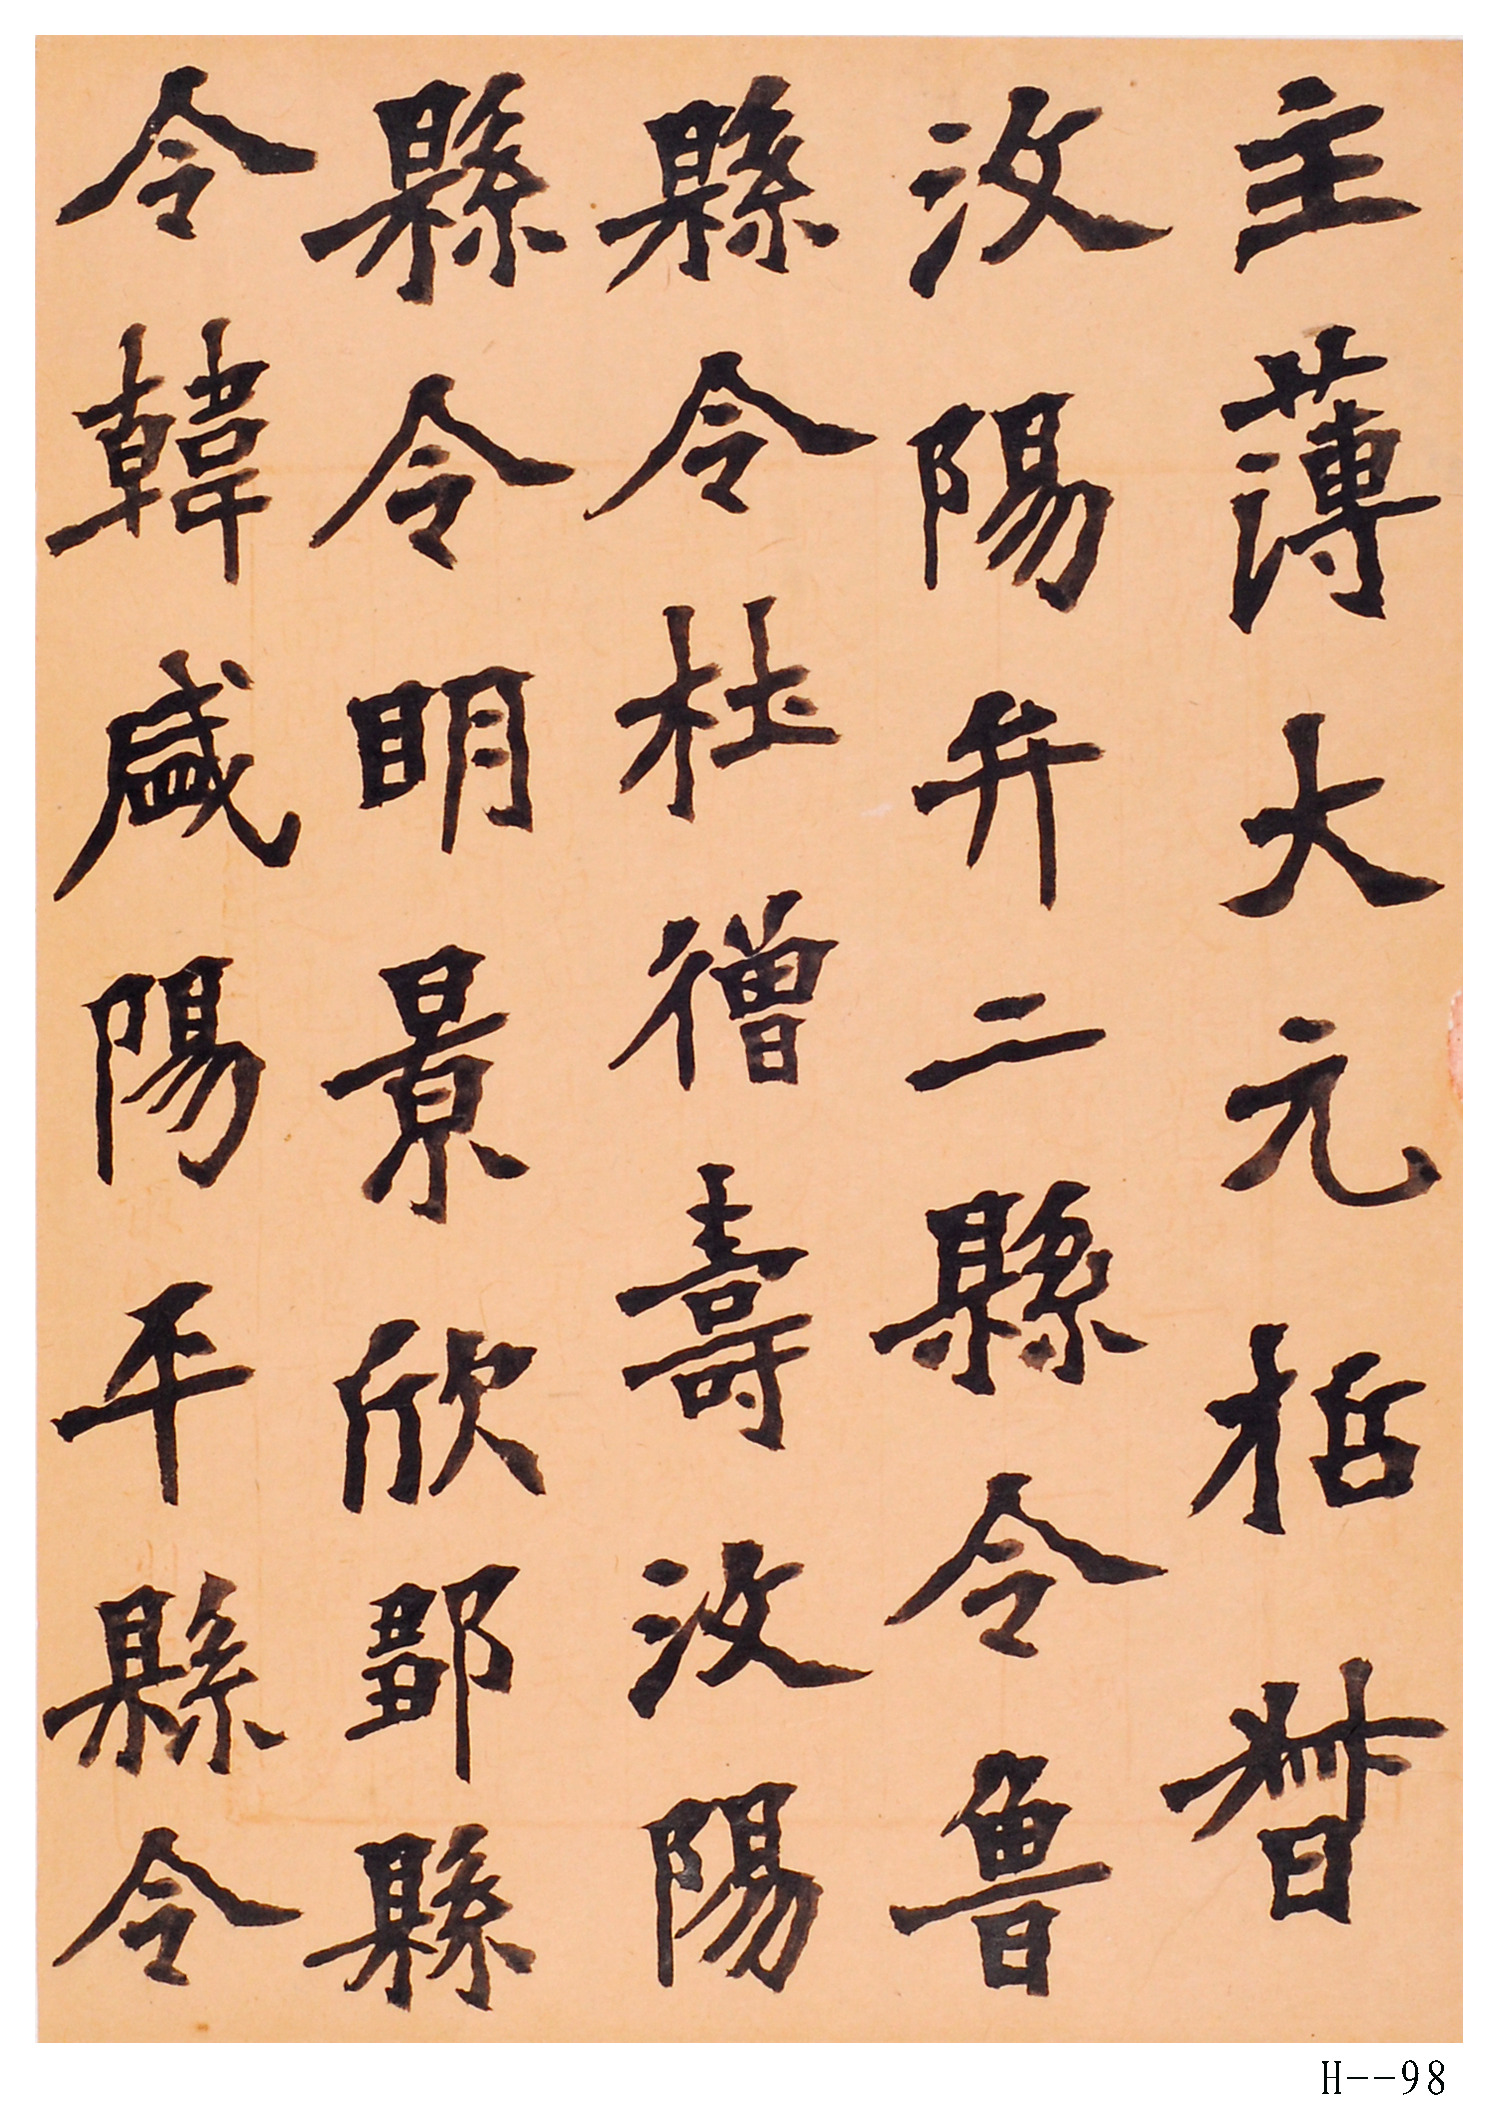 主薄大元栝督
汶陽弁二縣令魯
縣令杜僧壽汶陽
縣令明景欣鄒縣
令韓盛陽平縣令
H--98